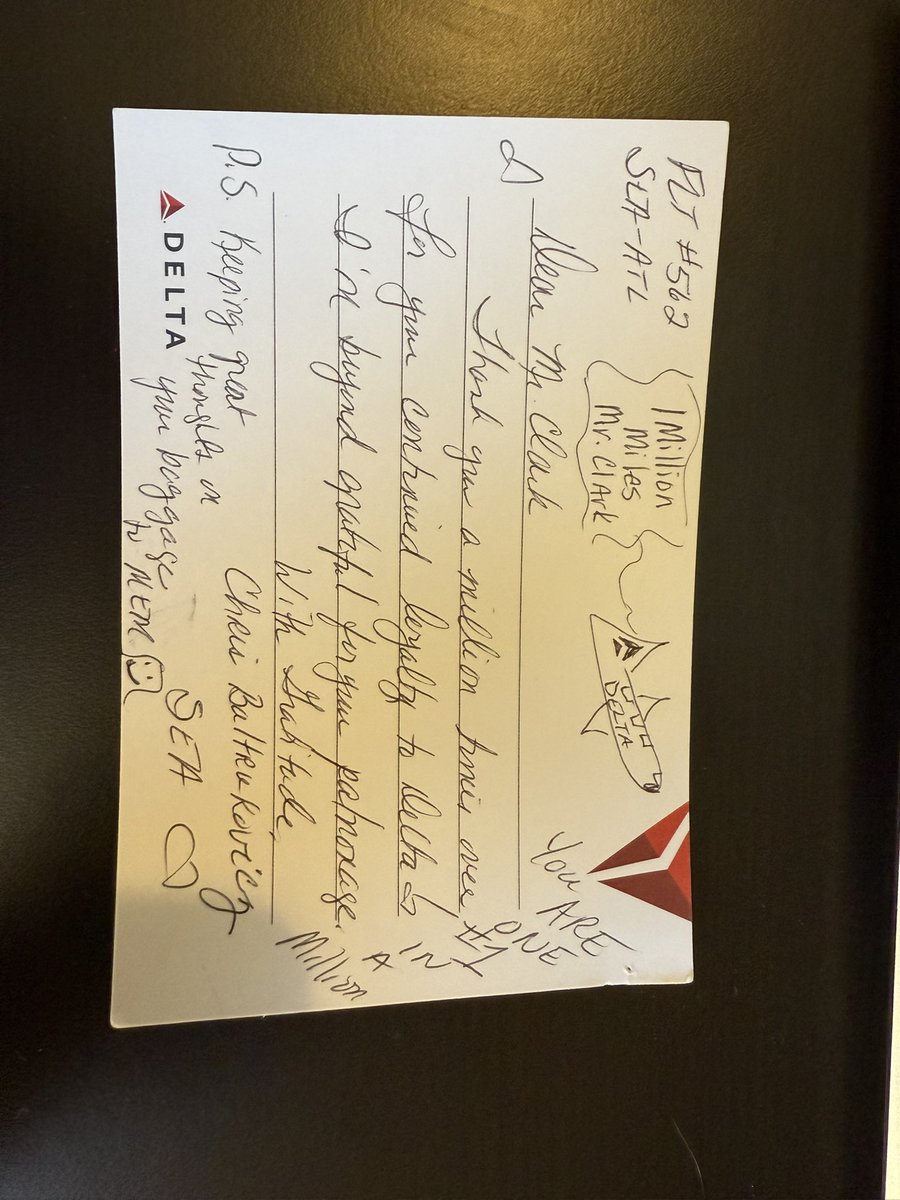 FLT #562
SEA-ATL
1 Million
Miles
Mr. Clark
DELTA
YOU ARE
ONE
#1
IN
A
Million
Dear Mr. Clark
Thank you a million times over
for your continued loyalty to Delta
I'm beyond grateful for your patronage.
With Gratitude,
Chris
SEA
P.S. Keeping great
thoughts on
your baggage
to MEM.
DELTA